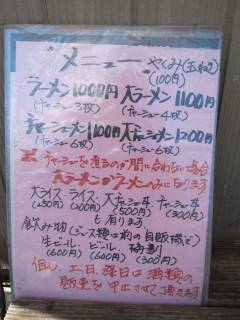 メニュー
やくみ(玉ねぎ)
(100円)
ラーメン1000円 大ラーメン1100円
(チャーシュー3枚) (チャーシュー4枚)
チャーシューメン1100円 大チャーシューメン1200円
(チャーシュー6枚) (チャーシュー6枚)
チャーシューを煮るのが間に合わない場合
大ラーメンかラーメンのみになります
大ライス、ライス、大チャーシュー丼、チャーシュー丼
(250円) (200円) (500円) (300円)
も有ります
飲み物(ジュース類は前の自販機で)
生ビール、ビール、梅割り
(600円) (600円) (300円)
但し、土、日、祭日は酒類の
販売を中止させて頂きます